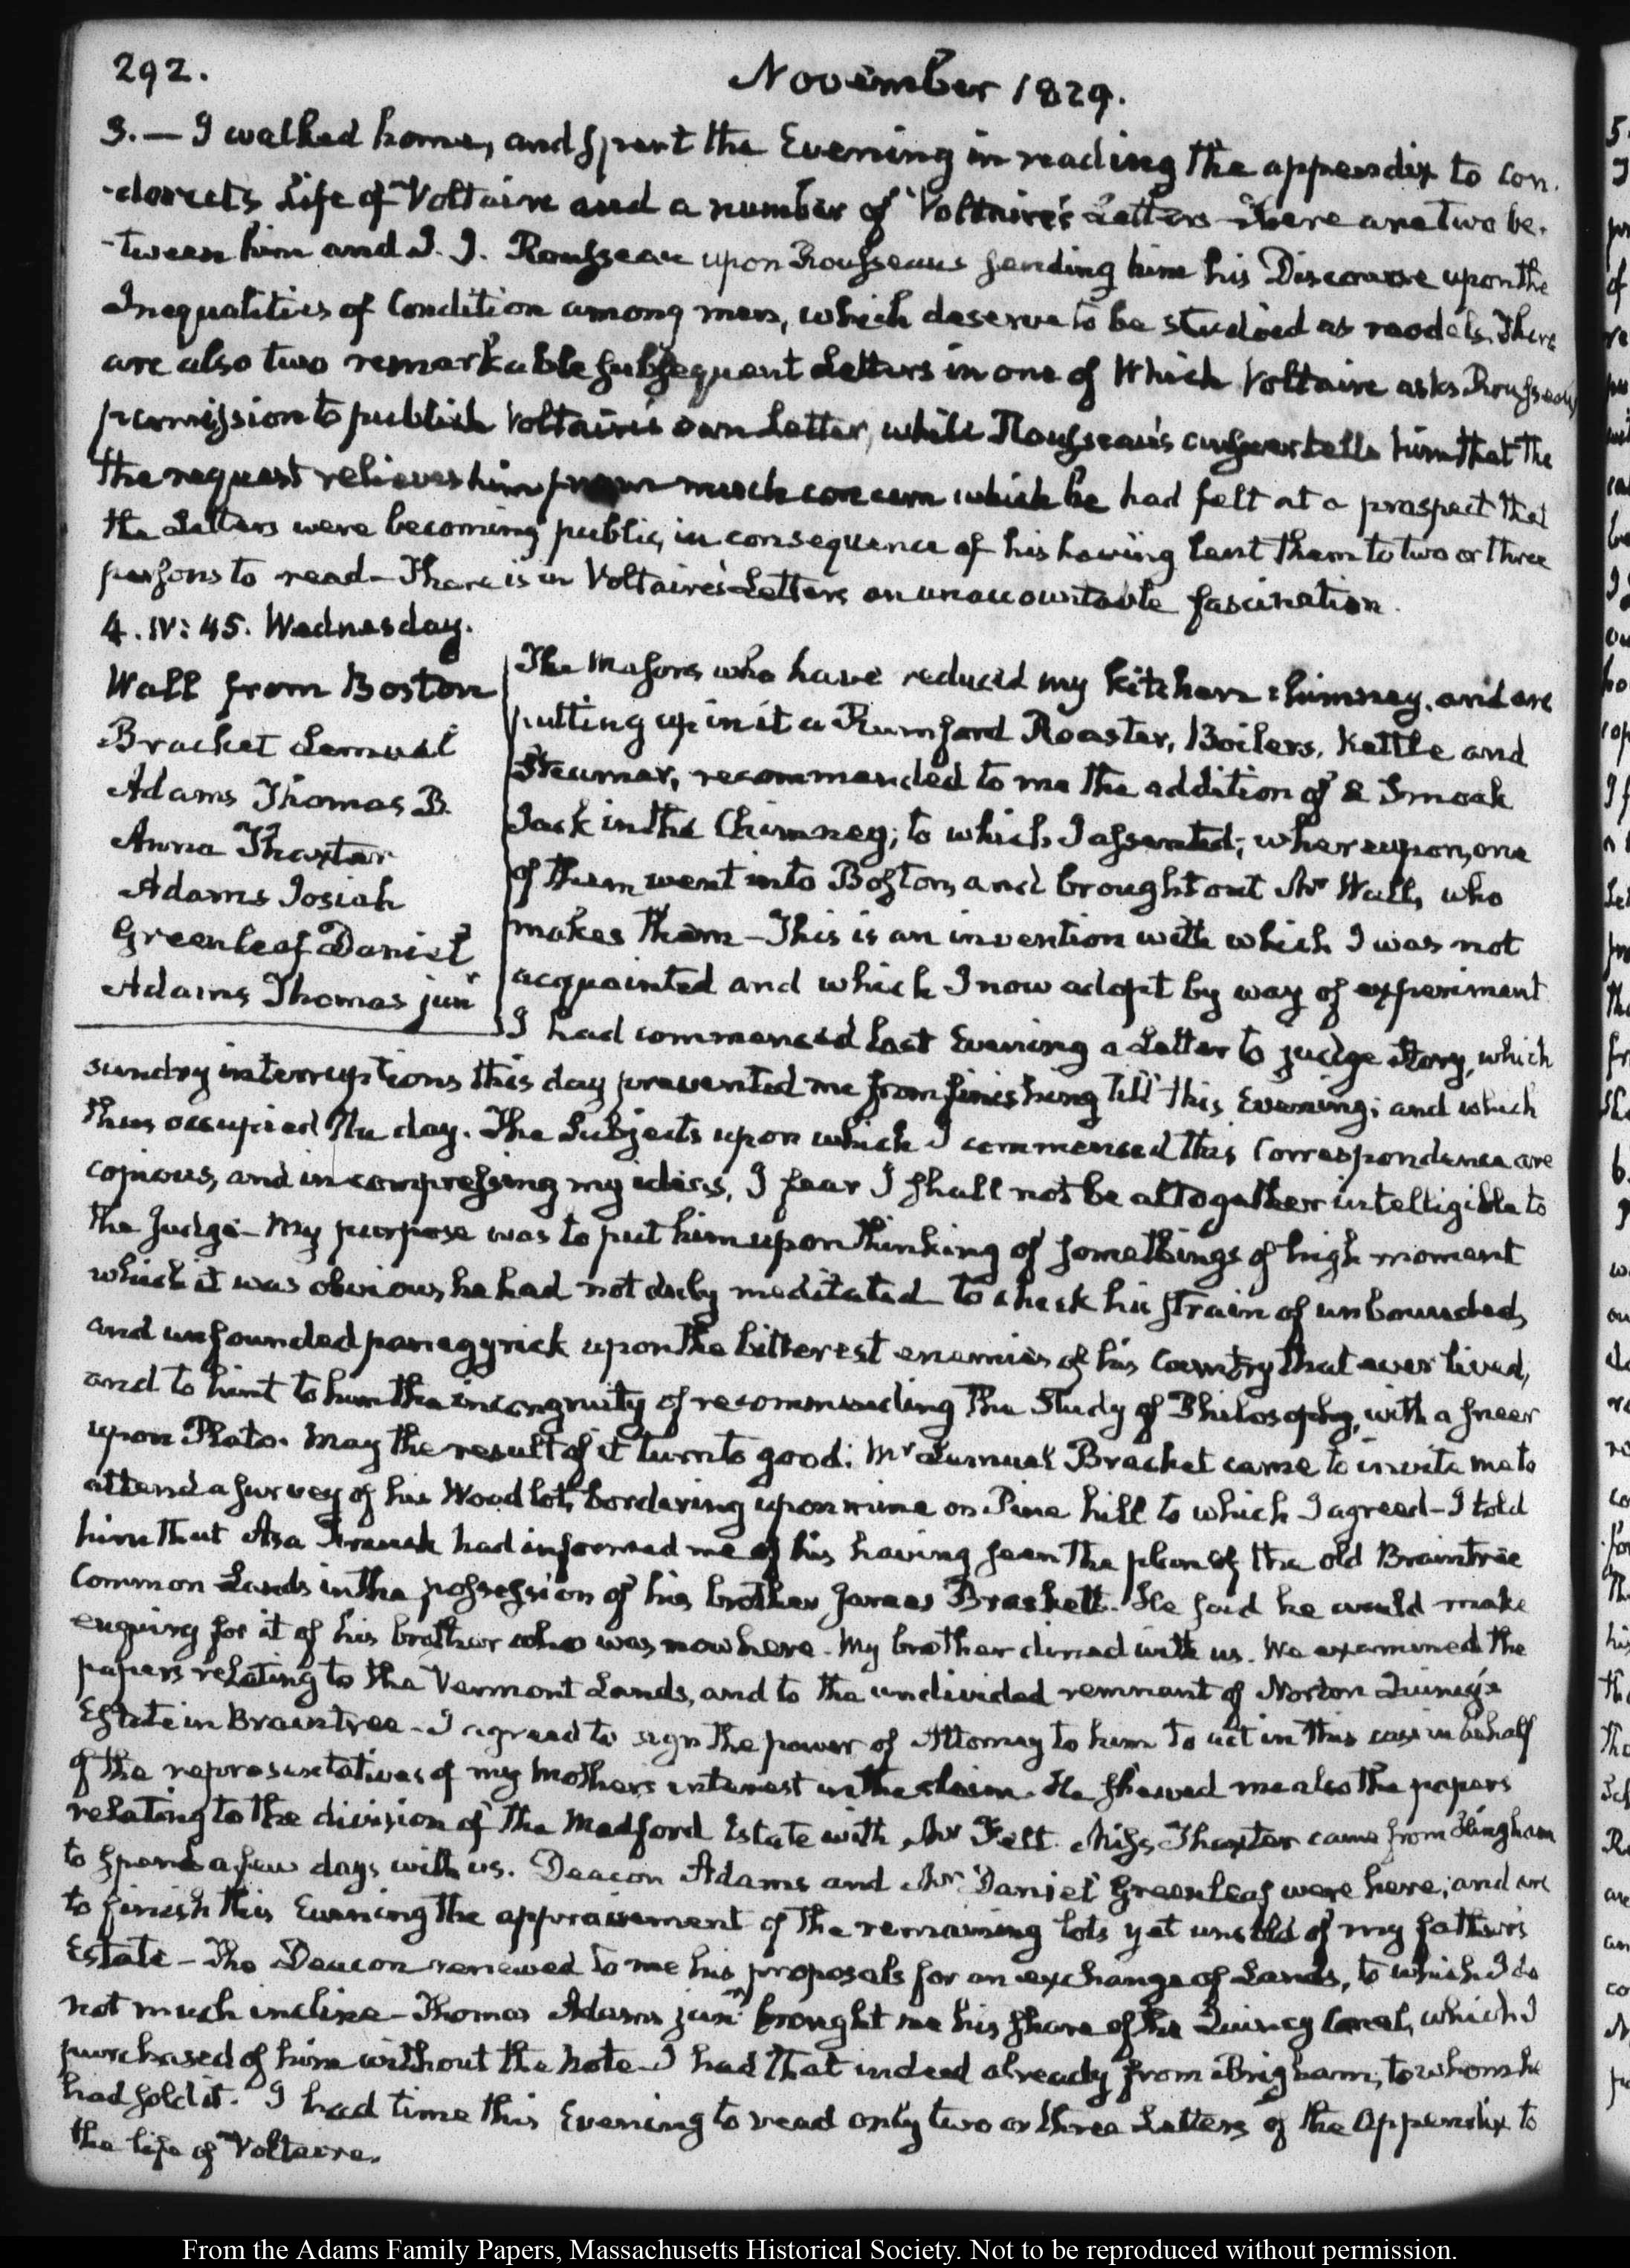 292.
November 1829.
3.— I walked home, and spent the Evening in reading the appendix to Con-
-dorcets Life of Voltaire and a number of Voltaire's Letters— There are two be-
-tween him and J. J. Rousseau upon Rousseaus sending him his Discourse upon the
Inequalities of Condition among men, which deserve to be studied as models. There
are also two remarkable subsequent Letters in one of which Voltaire asks Rousseau's
permission to publish Voltaire's own Letter, while Rousseau's answer tells him that the
the request relieves him from much concern which he had felt at a prospect that
the Letters were becoming public, in consequence of his having lent them to two or three
persons to read— There is in Voltaire's Letters an unaccountable fascination.
4. IV: 45. Wednesday.
Wall from Boston
Bracket Lemuel
Adams Thomas B.
Anna Thaxter
Adams Josiah
Greenleaf Daniel
Adams Thomas junr
The Masons who have reduced my kitchen chimney, and are
putting up in it a Rumford Roaster, Boilers, Kettle and
Steamer, recommended to me the addition of a Smoak
Jack in the Chimney; to which I assented; whereupon, one
of them went into Boston, and brought out Mr Wall, who
makes them— This is an invention with which I was not
acquainted and which I now adopt by way of experiment
I had commenced last Evening a Letter to judge Story, which
sundry interruptions this day prevented me from finishing till this Evening; and which
thus occupied the day. The Subjects upon which I commenced this Correspondence are
copious, and in compressing my ideas, I fear I shall not be altogether intelligible to
the Judge— My purpose was to put him upon thinking of some things of high moment
which it was obvious he had not duly meditated— to check his strain of unbounded,
and unfounded panegyrick upon the bitterest enemies of his Country that ever lived,
and to hint to him the incongruity of recommending the Study of Philosophy, with a sneer
upon Plato. May the result of it turn to good! Mr Lemuel Bracket came to invite me to
attend a survey of his Wood lot, bordering upon mine on Pine hill to which I agreed— I told
him that Asa French had informed me of his having seen the plan of the old Braintree
Common Lands in the possession of his brother James Brackett. He said he would make
enquiry for it of his brother who was now here. My brother dined with us. We examined the
papers relating to the Vermont Lands, and to the undivided remnant of Norton Quincy's
Estate in Braintree— I agreed to sign the power of Attorney to him to act in this case in behalf
of the representatives of my Mothers interest in the claim. He shewed me also the papers
relating to the division of the Medford Estate with Mr Felt. Miss Thaxter came from Hingham
to spend a few days with us. Deacon Adams and Mr Daniel Greenleaf were here; and are
to finish this Evening the appraisement of the remaining lots yet unsold of my father's
Estate— The Deacon renewed to me his proposals for an exchange of Lands, to which I do
not much incline— Thomas Adams junr brought me his share of the Quincy Canal, which I
purchased of him without the Note— I had that indeed already from Brigham, to whom he
had sold it. I had time this Evening to read only two or three Letters of the Appendix to
the life of Voltaire.
From the Adams Family Papers, Massachusetts Historical Society. Not to be reproduced without permission.